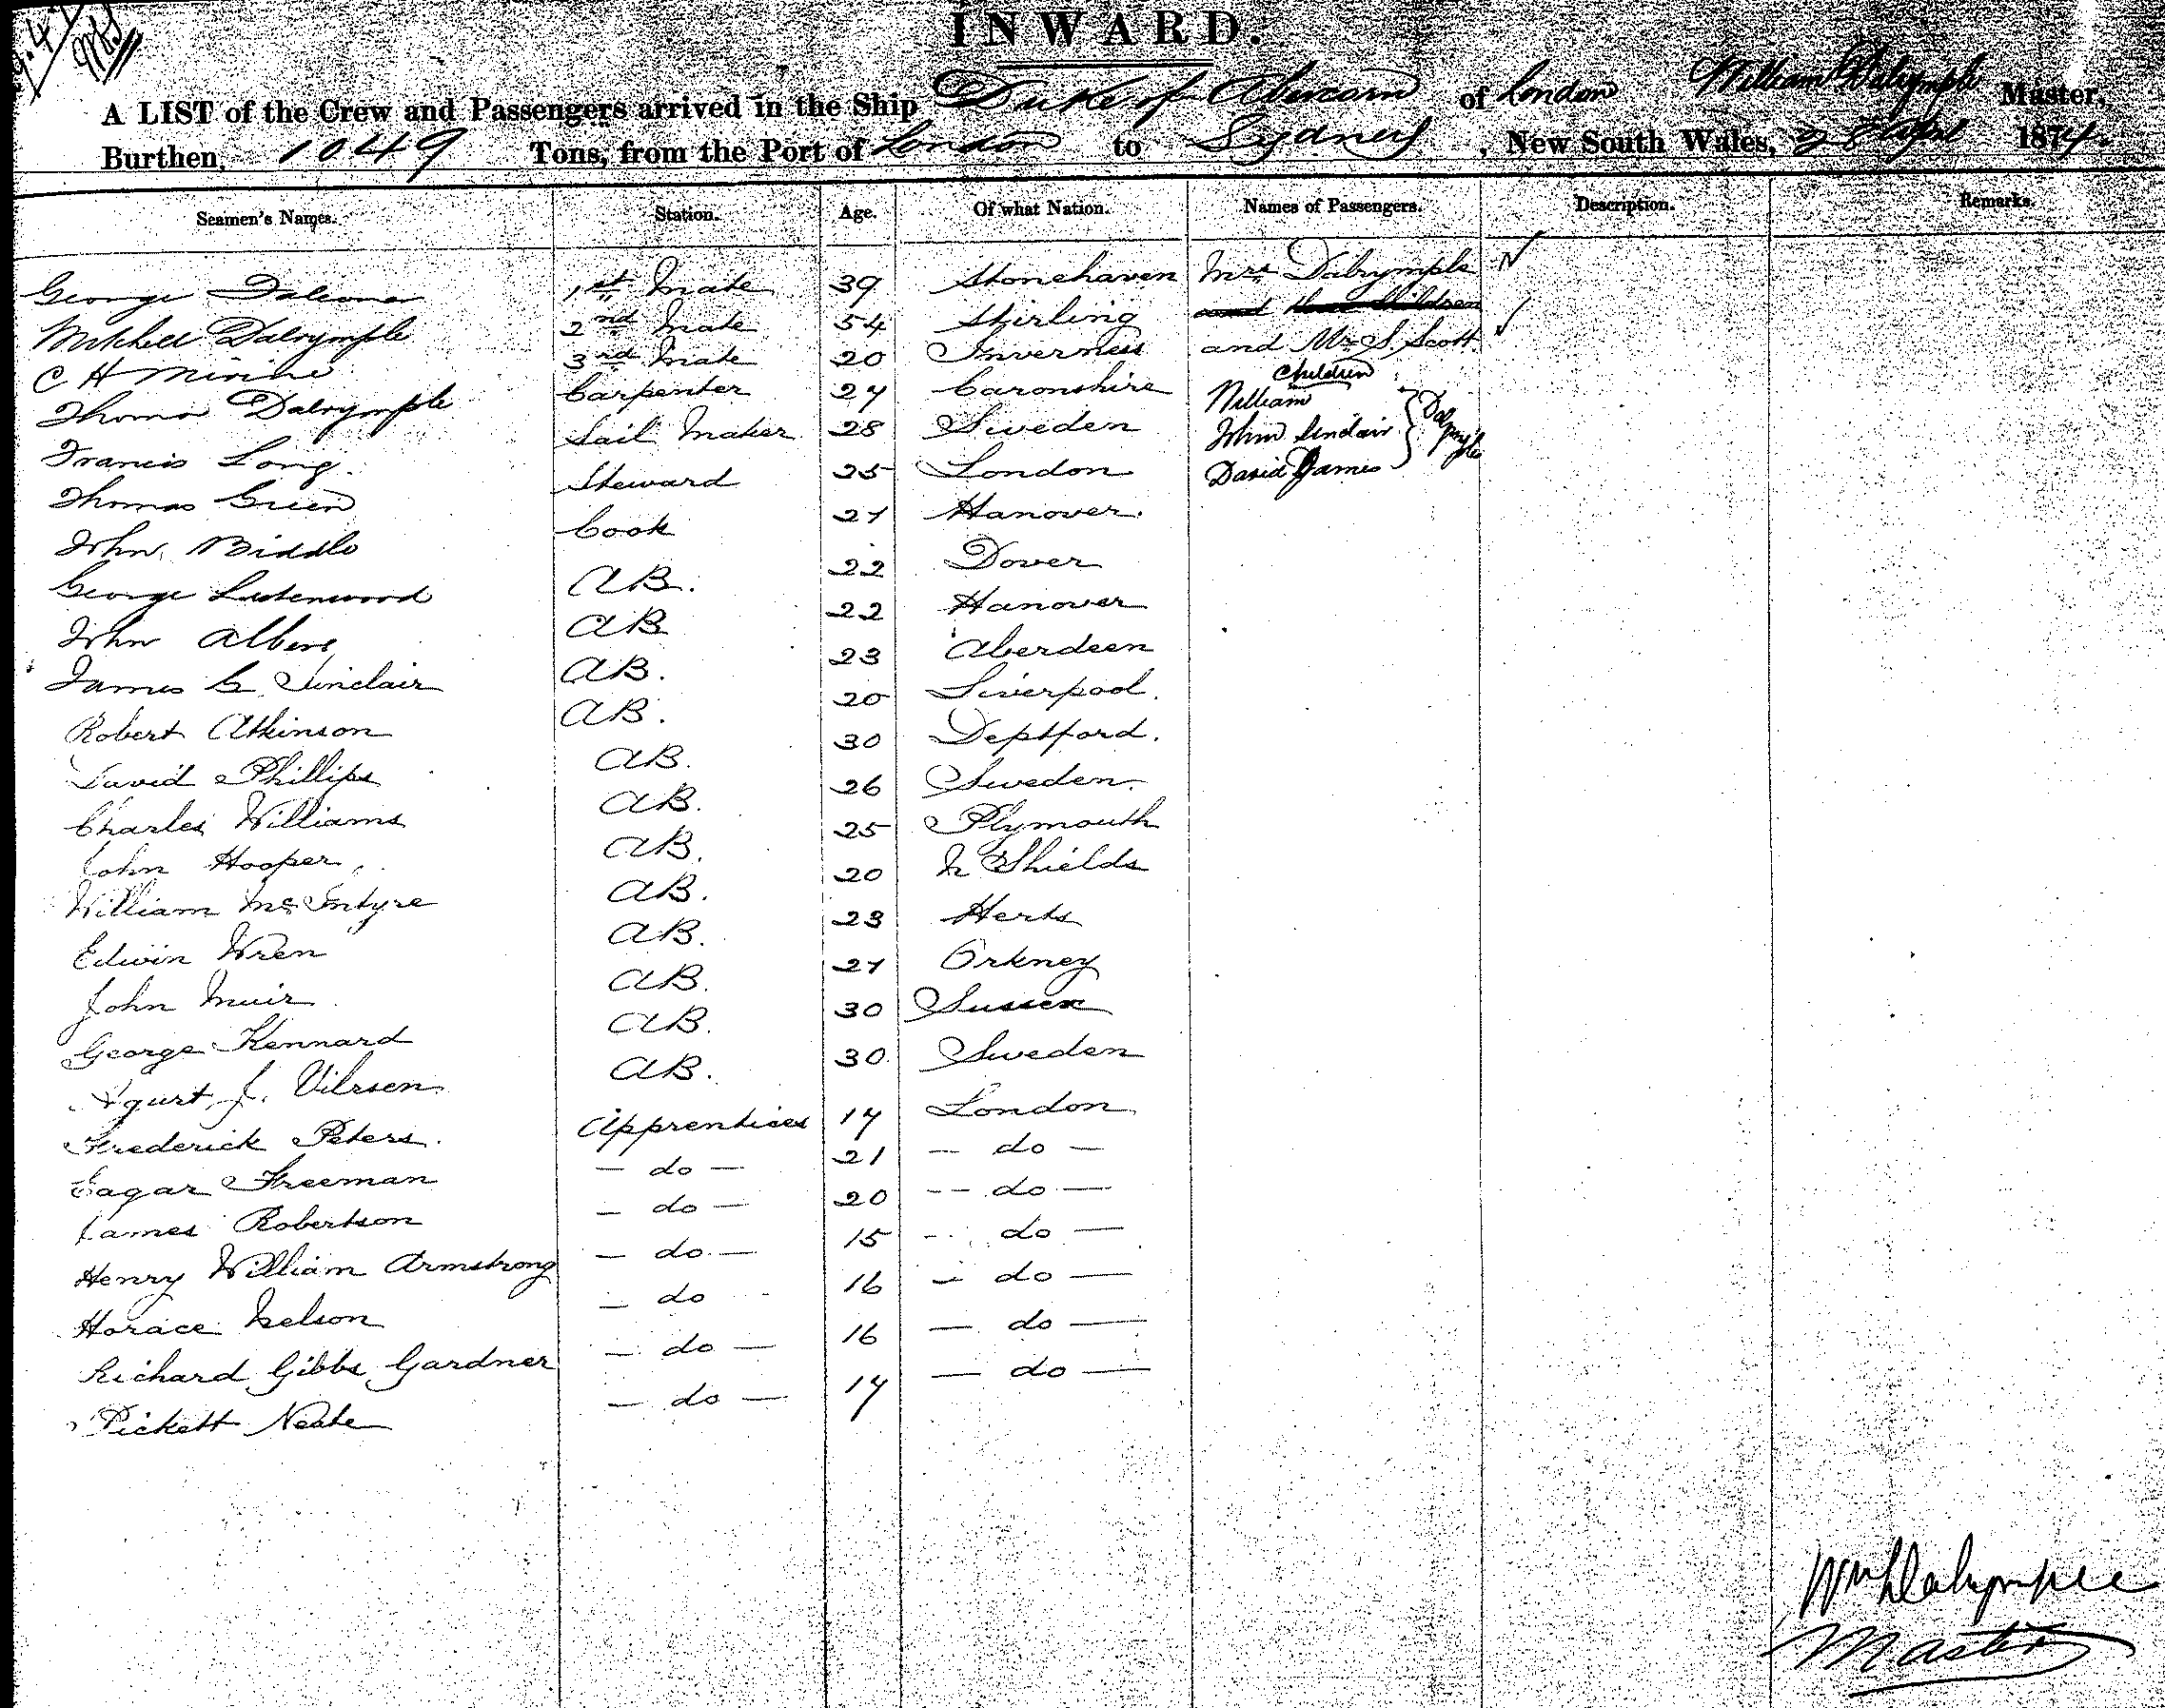 INWARD.
A LIST of the Crew and Passengers arrived in the Ship Duke of Abercorn of London William Dalrymple Master,
Burthen, 1049 Tons, from the Port of London to Sydney, New South Wales, 28 April 1874.
Seamen's Names. Station. Age. Of what Nation. Names of Passengers. Description. Remarks.
George 1st Mate 39 Stonehaven Mrs Dalrymple
Mitchell Dalrymple 2nd Mate 54 Stirling and children
C H 3rd Mate 20 Inverness and Mr S. Scott
Children
Thomas Dalrymple Carpenter 27 William
Francis Long. Sail Maker 28 Sweden John Sinclair Dalrymple
Thomas Green Steward 25 London David James
John Biddle Cook 27 Hanover.
George AB. 22 Dover
John AB 22 Hanover
James G Sinclair AB. 23 Aberdeen
Robert Atkinson AB. 20 Liverpool.
David Phillips AB. 30 Deptford.
Charles Williams AB. 26 Sweden.
John Hooper AB. 25 Plymouth
William McIntyre AB. 20 N Shields
Edwin Wren AB. 23 Herts
John Muir AB. 27 Orkney
George Kennard AB. 30 Sussex
J. AB. 30 Sweden
Frederick Peters. Apprentices 17 London
Freeman — do — 21 — do —
James Robertson — do — 20 — do —
Henry William Armstrong — do — 15 — do —
Horace Nelson — do 16 — do —
Richard Gibbs Gardner — do — 16 — do —
Pickett Neate — do — 17 — do —
Wm Dalrymple
Master